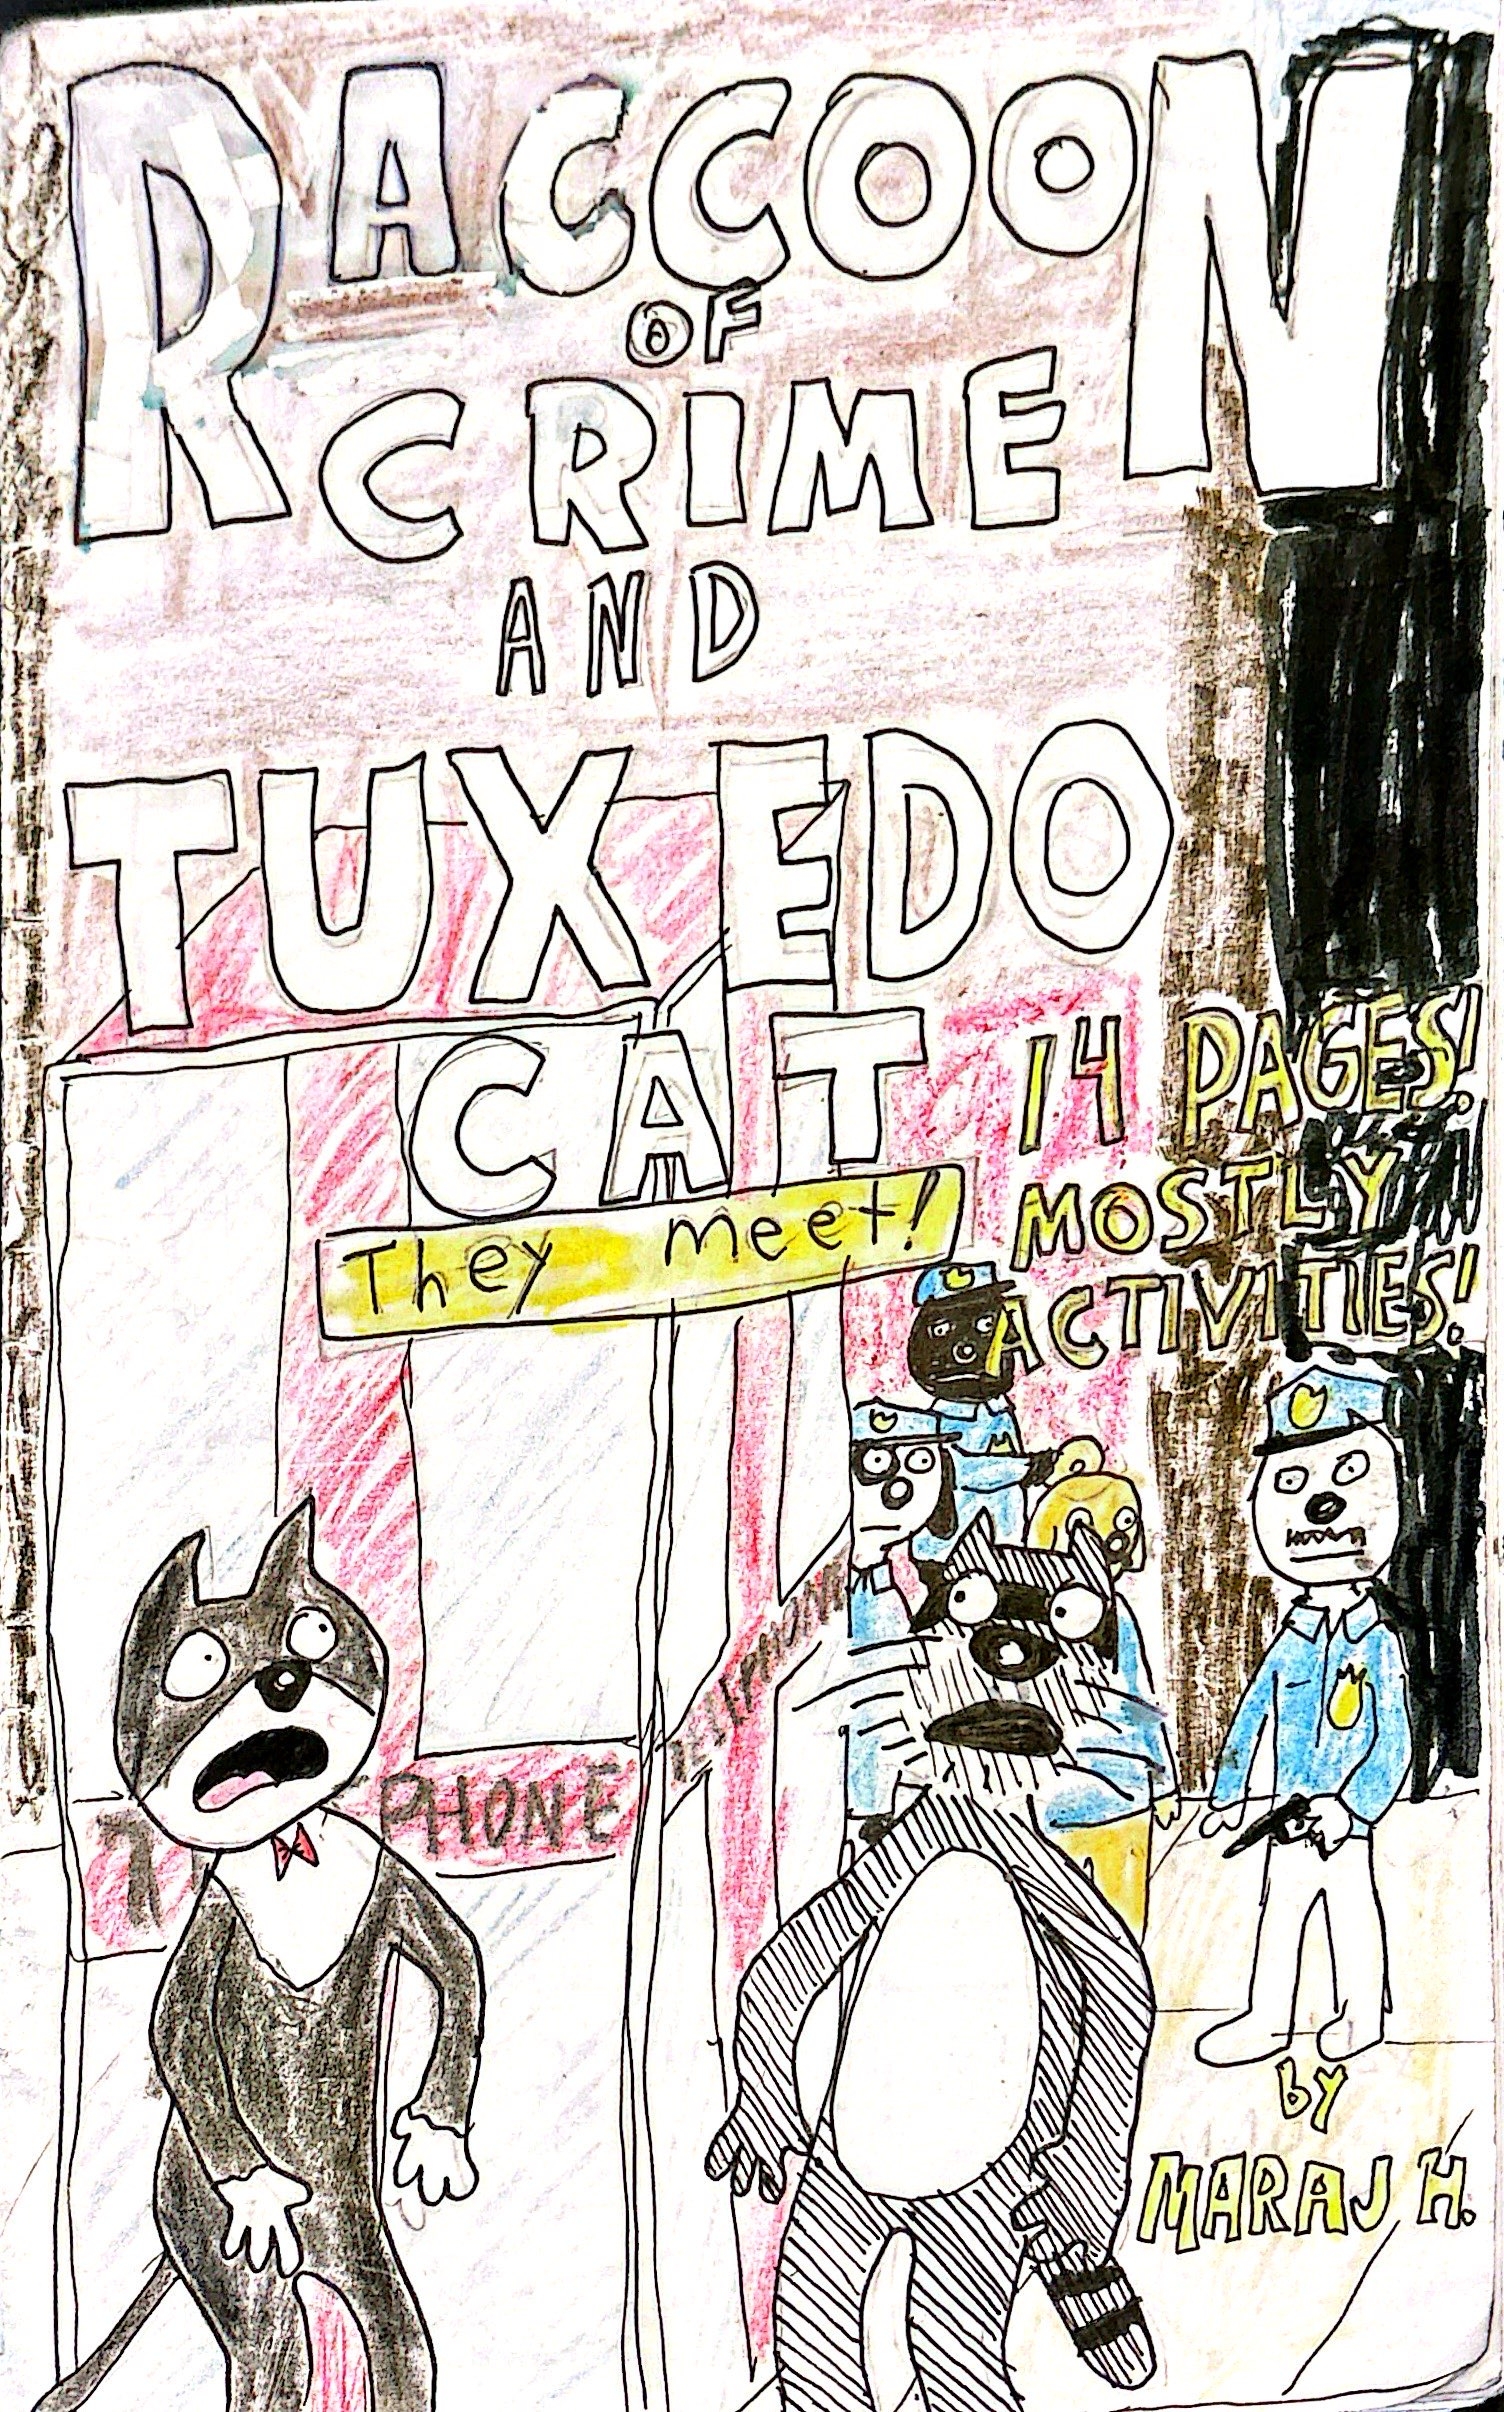 RACCOON
OF
CRIME
AND
TUXEDO
CAT
They meet!
14 PAGES!
MOSTLY
ACTIVITIES!
PHONE
by
MARAJ H.